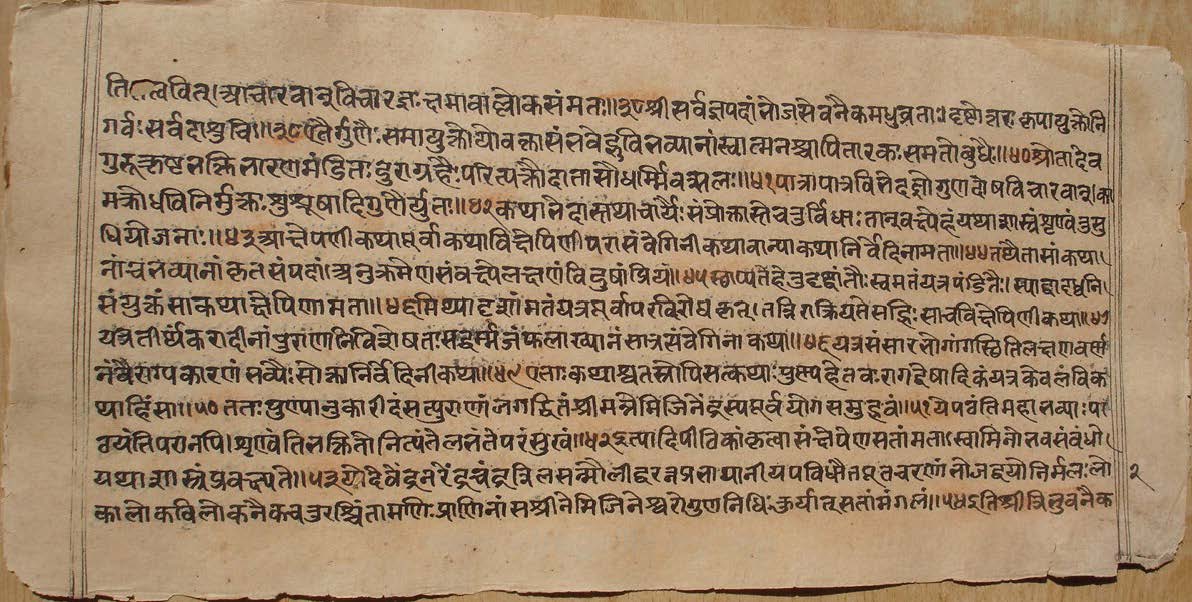 वित् आचारवान् विचारज्ञः क्षमावाल्लोकसंमतः॥३९श्रीसर्वज्ञपदांभोजसेवनैकमधुव्रतः। कृपायुक्तोनि
गर्वः सर्वदाशुविः॥ गुणैः समायुक्तोयोवक्तासंभवेद्भुविभव्यानांस्वात्मनश्चापितारकः समतोबुधैः॥४०श्रोतादेव
गुरूत्कृष्टभक्तिभारेणमंडितः दुराग्रहैः परित्यक्तोदातासौधर्म्मिवत्सलः॥४१पात्रापात्रविभेदज्ञोगुणदोषविचारवान्।का
मक्रोधविनिर्मुक्तः शुश्रूषादिगुणैर्युतः॥४२कथाभेदास्तथाचार्यैः संप्रोक्तास्तेचतुर्विधाः तान्वक्ष्येहंयथा शृण्वंतुसु
धियोजनाः॥४३आक्षेपणीकथापूर्वाकथाविक्षेपिणीपरासंवेगिनीकथाचान्याकथानिर्वेदिनीमता॥४४तथैतासांकथा
नांचभव्यानांकृतसंपदां।अनुक्रमेणसंवक्ष्येलक्षणंविदुषांप्रियं॥४५स्थाप्यतेहेतुदृष्टांतैः स्वमतंयत्रपंडितैः। स्याद्वादध्वनि
संयुक्तंसाकथाक्षेपिणीमता॥४६मिथ्यादृशांमतंयत्रपूर्वापरविरोधकृत्। तन्निराक्रियतेसद्भिः साचविक्षेपिणीकथा॥४७
यत्रतीर्थकरादीनांपुराणानिविशेषतः सद्धर्म्म फलाख्यानंसात्रसंवेगिनीकथा॥४८यत्रसंसारभोगांगस्थितिलक्षणवर्ण्ण
नंवैराग्यकारणंभव्यैः सोक्तानिर्वेदिनीकथा॥४९एताः कथाश्चतस्रोपिसत्कथाः पुण्यहेतवः रागद्वेषादिकंयत्रकेवलंविक
थाहिंसा॥५०ततः पुण्यानुकारीदंसत्पुराणंजगद्धितंश्रीमन्नेमिजिनेंद्रस्यपूर्वयोगसमुद्भवं॥५१येपठंतिमहाभव्याः पा
ठयंतिपरानपि।शृण्वंतिभक्तितोनित्यंतेलभंतेपरंसुखं॥५२इत्यादिपीठिकांकृत्वासंक्षेपेणसतांमतां।स्वामिनोभवसंबंधो
यथा प्रवक्ष्यते॥५३योदेवेंद्रनरेंद्रचंद्रविलसन्मौलीद्धरत्नप्रभापानीयपविधौतपूतचरणांभोजद्वयोनिर्मलः लो
कालोकविलोकनैकचतुरश्चिंतामणिः प्राणिनांसश्रीनेमिजिनेश्वरोगुणनिधिः कुर्यात्सतांमंगलं॥५४इतिश्रीत्रिभुवनैक
२